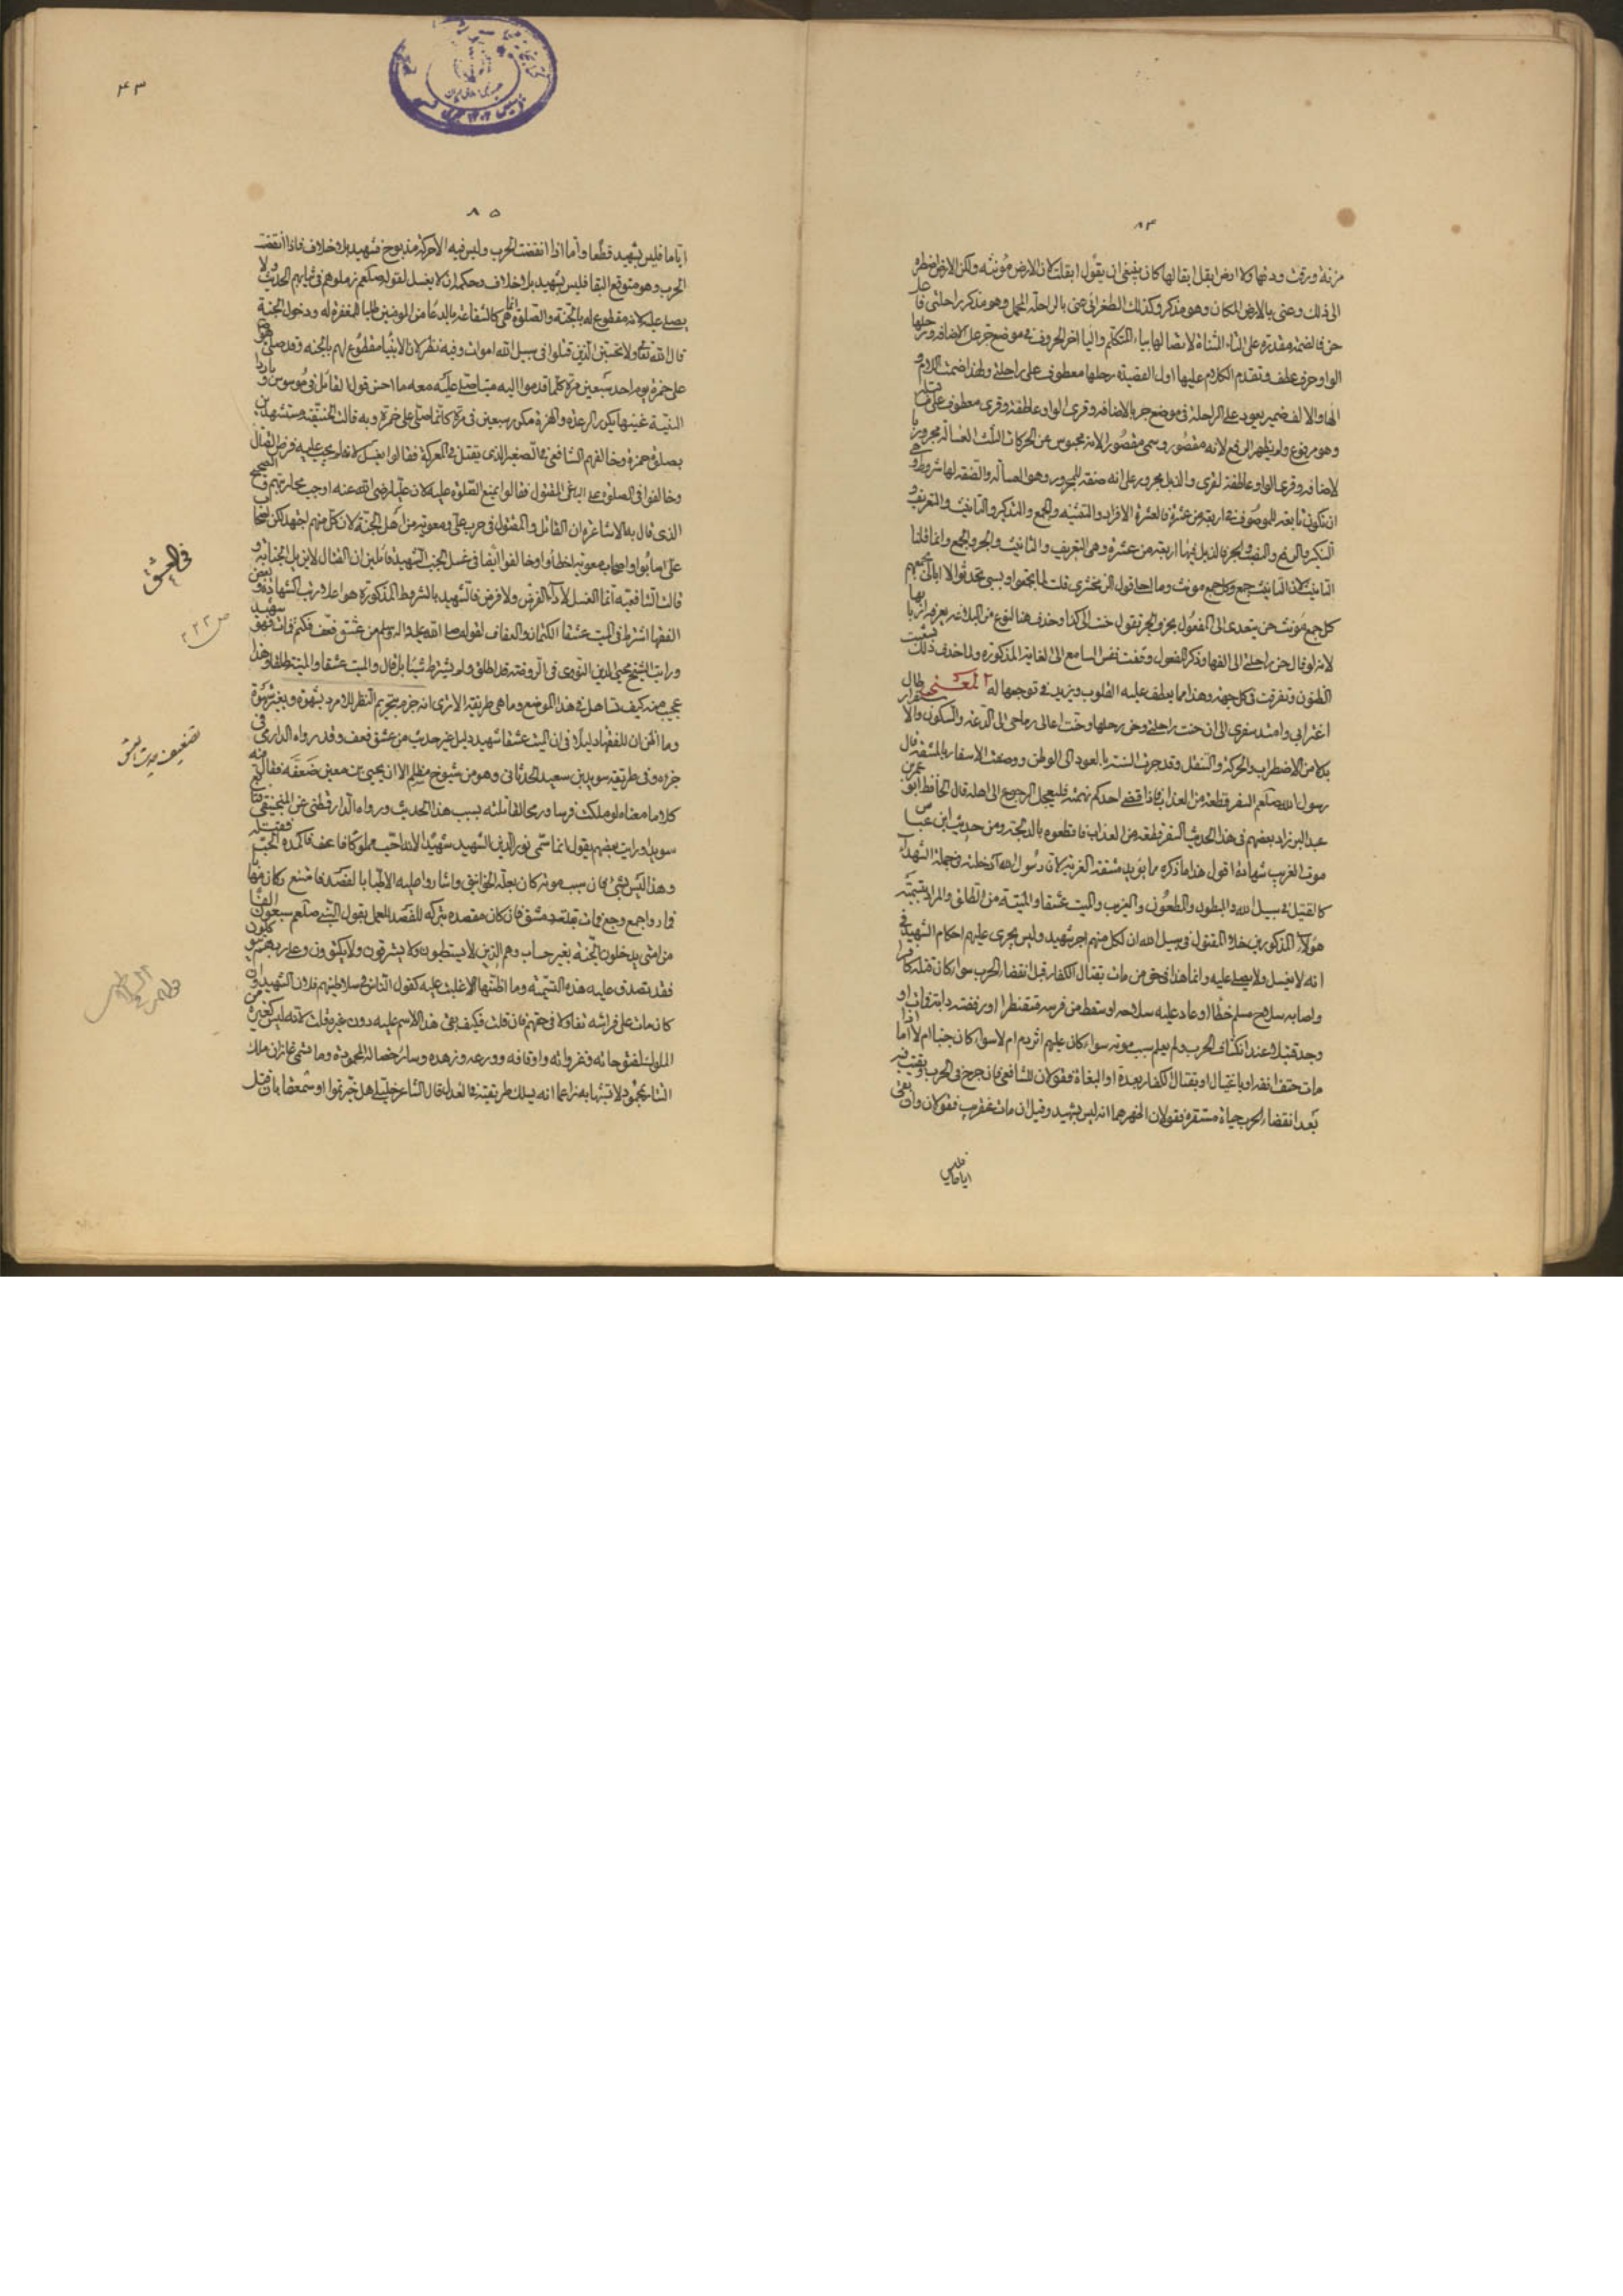 ٨٣
مزنة ودقت ودقها ولا ارض ابقل ابقالها كان ينبغي ان يقول ابقلت لان الارض مؤنثه ولكن الارض اضطره
الى ذلك وعنى بالارض المكان وهو مذكر وكذلك الطغرائي عنى بالراحلة الجمل وهو مذكر راحلتي فا
حن فالضمة مقدرة على التاء المثناة لاتصالها بياء المتكلم والياء اخر الحروف في موضع جر على الاضافه ورحلها
الواو حرف عطف وتقدم الكلام عليها اول القصيدة رحلها معطوف على راحلتي ولهذا ضمت اللام و
الهاء والالف ضمير يعود على الراحلة في موضع جر بالاضافه وقرى الواو عاطفة وقرى معطوف على ما قبله
وهو مرفوع ولم يظهر الرفع لانه مقصور وسمي مقصورا لانه محبوس عن الحركات الثلث العسالة مجرور با
لاضافه وقرى الواو عاطفة لقرى والذبل مجرور على انه صفة للمجرور وهو العسالة والصفه لها شروط و
ان تكون تابعة للموصوف في اربعة من عشرة فالعشرة الافراد والتثنيه والجمع والتذكير والتانيث والتعريف و
التنكير والرفع والنصب والجر فالذبل فيها اربعة من عشرة وهي التعريف والتانيث والجر والجمع وانما قلنا
التانيث لان التانيث جمع وكل جمع مونث وما احلى قول الزمخشري
كل جمع مؤنث حن يتعدى الى المفعول بحرف الجر تقول حنت الى كذا وحذف هنا النوع من البلاغه يعرفه ارباب
لانه لو قال حن راحلتي الى الفها وذكر المفعول وقفت نفس السامع الى الغاية المذكوره ولما حذف ذلك تشعبت
الظنون وتفرقت في كل جهة وهذا مما يعطف عليه القلوب ويزيد في توجعها له المعنى طال
اغترابي وامتد سفري الى ان حنت راحلتي وحن رحلها وحنت اعالي رماحي الى الدعة والسكون والاستقرار
بدلا من الاضطراب والحركة والتنقل وقد جرت السنة بالعود الى الوطن ووصف الاسفار بالمشقه قال
رسول الله صلعم السفر قطعة من العذاب فاذا قضى احدكم نهمته فليعجل الرجوع الى اهله قال الحافظ ابو عمر بن
عبد البر زاد بعضهم في هذا الحديث السفر قطعة من العذاب فاقطعوه بالدلجة ومن حديث ابن عباس
موت الغريب شهادة اقول هذا ما ذكره مما يؤيد مشقة الغربة لان رسول الله ادخله في جملة الشهداء
كالقتيل في سبيل الله والمبطون والمطعون والغريب والميت عشقا والميتة من الطلق والمراد بتسميته
هؤلاء المذكورين خلا المقتول في سبيل الله ان لكل منهم اجر شهيد وليس يجري عليهم احكام الشهيد في
انه لا يغسل ولا يصلى عليه وانما هذا في حق من مات بقتال الكفار قبل انقضاء الحرب سواء كان قتله كافر
واصابه سلاح مسلم خطأ او عاد عليه سلاحه او سقط من فرسه فتقنطر او رفسته دابة فمات او
وجد قتيلا عند انكشاف الحرب ولم يعلم سبب موته سواء كان عليهم اثر دم ام لا سواء كان جنبا ام لا اما اذا
مات حتف انفه او باغتيال او بقتال الكفار بعده او البغاة فقولان للشافعي فان جرح في الحرب وبقيت فيه
بعد انقضاء الحرب حياة مستقرة فقولان اظهرهما انه ليس بشهيد وقيل ان مات عن قرب فقولان وان بقى
اياما فليس
٤٣
٨٥
اياما فليس بشهيد قطعا واما اذا انقضت الحرب وليس فيه الا حركة مذبوح فشهيد بلا خلاف فاذا انقضت
الحرب وهو متوقع البقا فليس بشهيد بلا خلاف وحكمه ان لا يغسل لقوله صلعم زملوهم في ثيابهم الحديث ولا
يصلى عليه لانه مقطوع له بالجنة والصلوة انما هي كالشفاعة بالدعا من المومنين طلبا للمغفرة له ودخول الجنة
قال الله تعالى ولا تحسبن الذين قتلوا في سبيل الله امواتا وفيه نظر لان الانبيا مقطوع لهم بالجنة وقد صلى
على حمزة يوم احد سبعين مرة كلما قدموا اليه ميتا صلى عليه معه ما احسن قول القائل في موسوس
النية
بصلوة حمزة وخالفهم الشافعي في الصغير الذي يقتل في المعركة فقالوا يغسل لانه لم يجب عليه فرض القتال
وخالفوا في الصلوة على الباغي المقتول فقالوا يمنع الصلوة عليه لان عليا رضي الله عنه اوجب محاربتهم والصحيح
الذي قال به الاشاعرة ان القاتل والمقتول في حرب علي ومعوية من اهل الجنة لان كل منهم اجتهد لكن اصحاب
علي اصابوا واصحاب معوية اخطأوا وخالفوا ايضا في غسل الجنب الشهيد قائلين ان القتال لا يزيل الجنابة و
قالت الشافعية انما الغسل لاداء الفرض ولا فرض فالشهيد بالشروط المذكورة هو اعلا رتب الشهادة وبعض
الفقها اشترط في الميت عشقا الكتمان والعفاف لقوله صلى الله عليه واله وسلم من عشق فعف فكتم فمات فهو شهيد
ورايت الشيخ محيي الدين النووي في الروضة قد اطلق ولم يشترط شيئا بل قال والميت عشقا والميتة طلقا وهذا
عجيب منه كيف تساهل في هذا الموضع وما هي طريقته الا ترى انه جزم بتحريم النظر للامرد بشهوة وبغير شهوة
وما اظن ان للفقها دليلا في ان الميت عشقا شهيد دليل غير حديث من عشق فعف وقد رواه الدارمي في
جزءه وفي طريقته سويد بن سعيد الحدثاني وهو من شيوخ مسلم الا ان يحيى بن معين ضعفه فقال فيه
كلاما معناه لو ملكت فرسا ورمحا لقاتلته بسبب هذا الحديث ورواه الدارقطني عن المنجنيقي
سويد ورايت بعضهم يقول انما سمي نور الدين الشهيد شهيدا لانه احب مملوكا فاعف فاكمده الحب فقتله
وهذا ليس بشي فان سبب موته كان بعلة الخوانيق واشاروا عليه الاطبا بالفصد فامتنع وكان مهابا
فما روجع وجع ومات بقلعة دمشق فان كان مقصده بتركه للفصد العمل بقول النبي صلعم سبعون الفا
من امتي يدخلون الجنة بغير حساب وهم الذين لا يتطيبون ولا يسترقون ولا يكتوون وعلى ربهم يتوكلون
فقد يصدق عليه هذه التسمية وما اظنها الا غلبت عليه كقول الناس في سلاطينهم فلان الشهيد وان
كان مات على فراشه تفاؤلا في حقهم فان قلت فكيف بقى هذا الاسم عليه دون غيره قلت لانه ليس كغيره من
الملوك لفتوحاته وغزواته واوقافه وورعه وزهده وسائر خصاله المحمودة وما سمي غازان ملك
التتار بمحمود الا تشبها به زاعما انه يسلك طريقته في العدل قال الشاعر خليلي هل خبرتما او سمعتما بان قتيل
في العشق
ص ٢٢٢
تضعيف حديث العشق